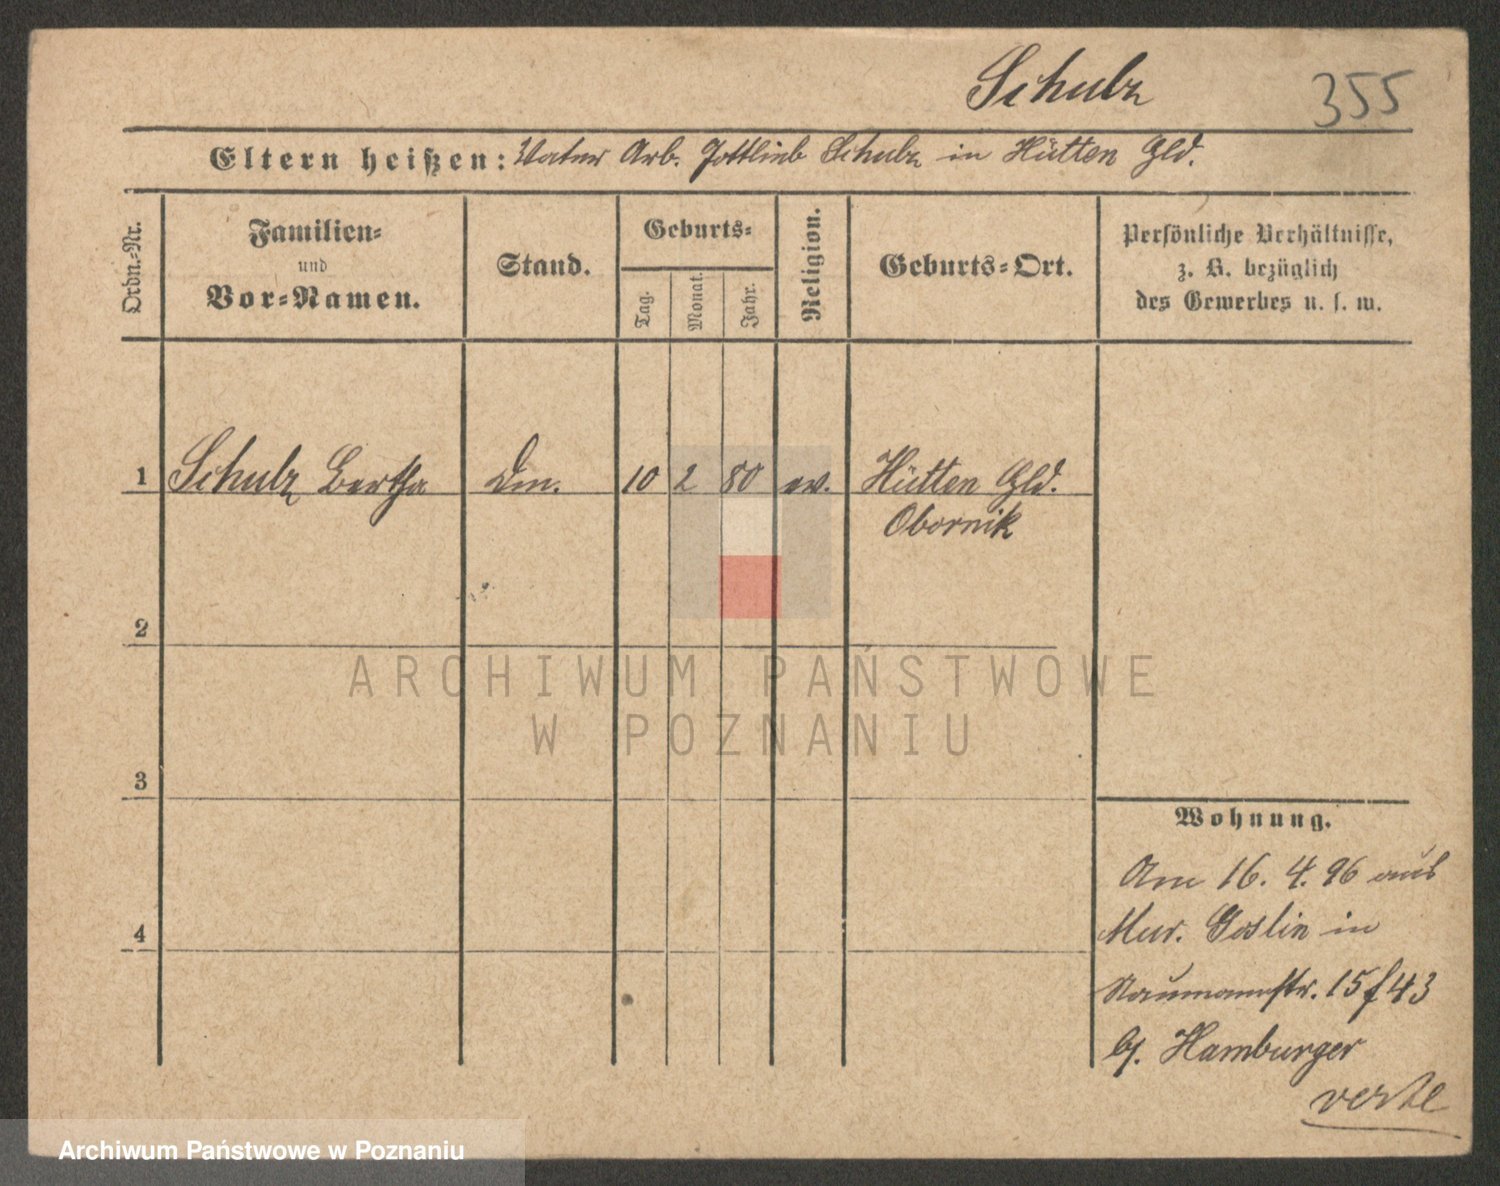 Schulz 355
Eltern heißen: Vater Arb. Gottlieb Schulz in Hütten Gld.
Ordn.-Nr.
Familien-
und
Vor-Namen.
Stand.
Geburts-
Tag.
Monat.
Jahr.
Religion.
Geburts-Ort.
Persönliche Verhältnisse,
z. B. bezüglich
des Gewerbes u. s. w.
1 Schulz Bertha Dm. 10 2 80 ev. Hütten Gld.
Obornik
2
3
4
Wohnung.
Am 16. 4. 96 aus
Mur. Goslin in
Naumannstr. 15 f 43
bj. Hamburger
verte
ARCHIWUM PAŃSTWOWE
W POZNANIU
Archiwum Państwowe w Poznaniu